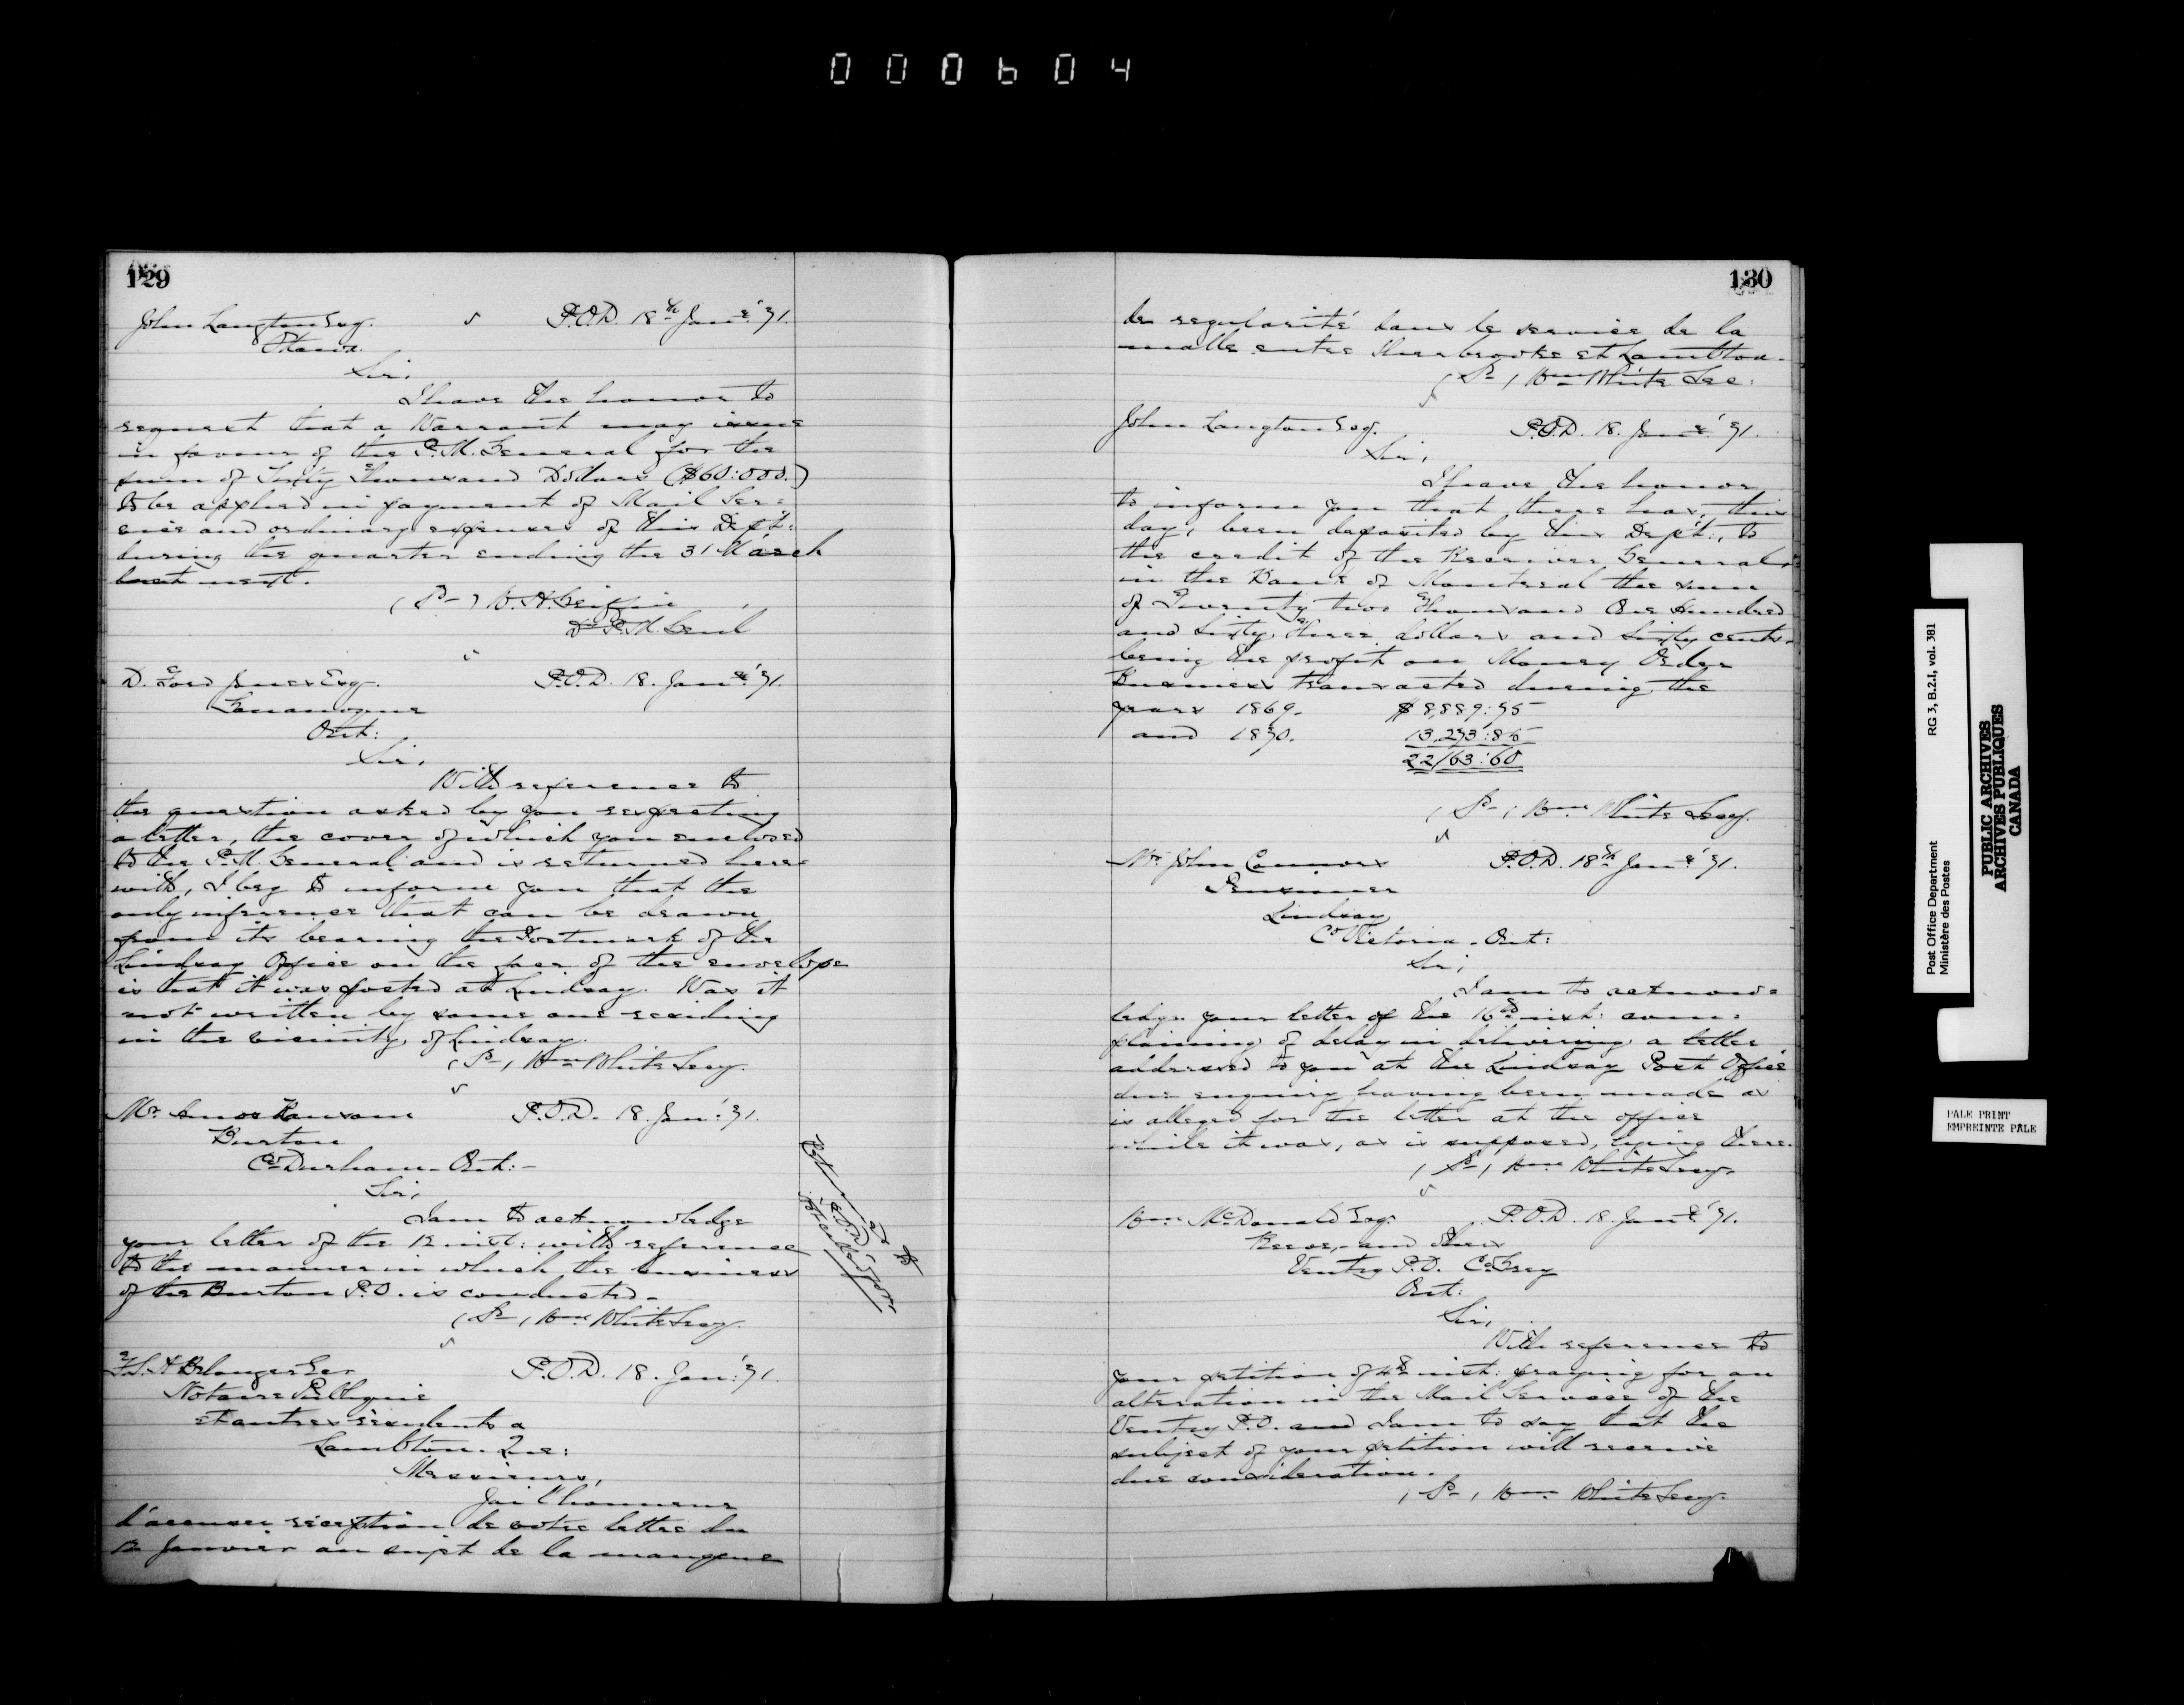 000604
129
John Langton Esq. P.O.D. 18th Jany '71.
Ottawa.
Sir,
I have the honor to
request that a Warrant may issue
in favour of the P.M. General for the
sum of Sixty Thousand Dollars ($60:000.)
to be applied in payment of Mail Ser=
vice and ordinary expenses of this Dept:
during the quarter ending the 31 March
next.
(Sd) W.H. Griffin
D. P.M. Genl
D. Ford Jones Esq. P.O.D. 18. Jany '71.
Gananoque
Ont:
Sir,
With reference to
the question asked by you respecting
a letter, the cover of which you enclosed
to the P.M. General and is returned here=
with, I beg to inform you that the
only inference that can be drawn
from its bearing the Postmark of the
Lindsay Office on the face of the envelope
is that it was posted at Lindsay. Was it
not written by some one residing
in the vicinity of Lindsay.
(Sd) Wm White Secy.
Mr Amos Ransom P.O.D. 18. Jan: '71.
Burton
Co Durham - Ont: -
Sir,
I am to acknowledge
your letter of the 12 inst: with reference
to the manner in which the business
of the Burton P.O. is conducted -
(Sd) Wm White Secy.
Belanger P.O.D. 18. Jan: '71.
Notaire Publique
et autres résidents a
Lambton. Que:
Messieurs,
J'ai l'honneur
d'accuser réception de votre lettre du
12 Janvier au sujet de la manque
130
de regularité dans le service de la
malle entre Sherbrooke et Lambton.
(Sd) Wm White Sec:
John Langton Esq. P.O.D. 18. Jany '71.
Sir,
I have the honor
to inform you that there has, this
day, been deposited by this Dept:, to
the credit of the Receiver General
in the Bank of Montreal the sum
of Twenty two Thousand One Hundred
and Sixty Three dollars and Sixty cents.
being the profit on Money Order
Business transacted during the
years 1869. $8,889:75
and 1870. 13,273:85
22163:60
(Sd) Wm White Secy.
Mr John Connors P.O.D. 18th Jany '71.
Pensioner
Lindsay
Co Victoria - Ont:
Sir,
I am to acknow=
ledge your letter of the 16th inst: com=
plaining of delay in delivering a letter
addressed to you at the Lindsay Post Office
due enquiry having been made as
is alleged for the letter at the office
while it was, as is supposed, lying there.
(Sd) Wm White Secy.
Wm McDonald Esq. P.O.D. 18. Jany '71.
Reeve, and others
Ventry P.O. Co Grey
Ont:
Sir,
With reference to
your petition of 4th inst: praying for an
alteration in the Mail Service of the
Ventry P.O. and I am to say that the
subject of your petition will receive
due consideration.
(Sd) Wm White Secy.
Post Office Department RG 3, B.2.I, vol. 381
Ministère des Postes
PUBLIC ARCHIVES
ARCHIVES PUBLIQUES
CANADA
PALE PRINT
EMPREINTE PÂLE